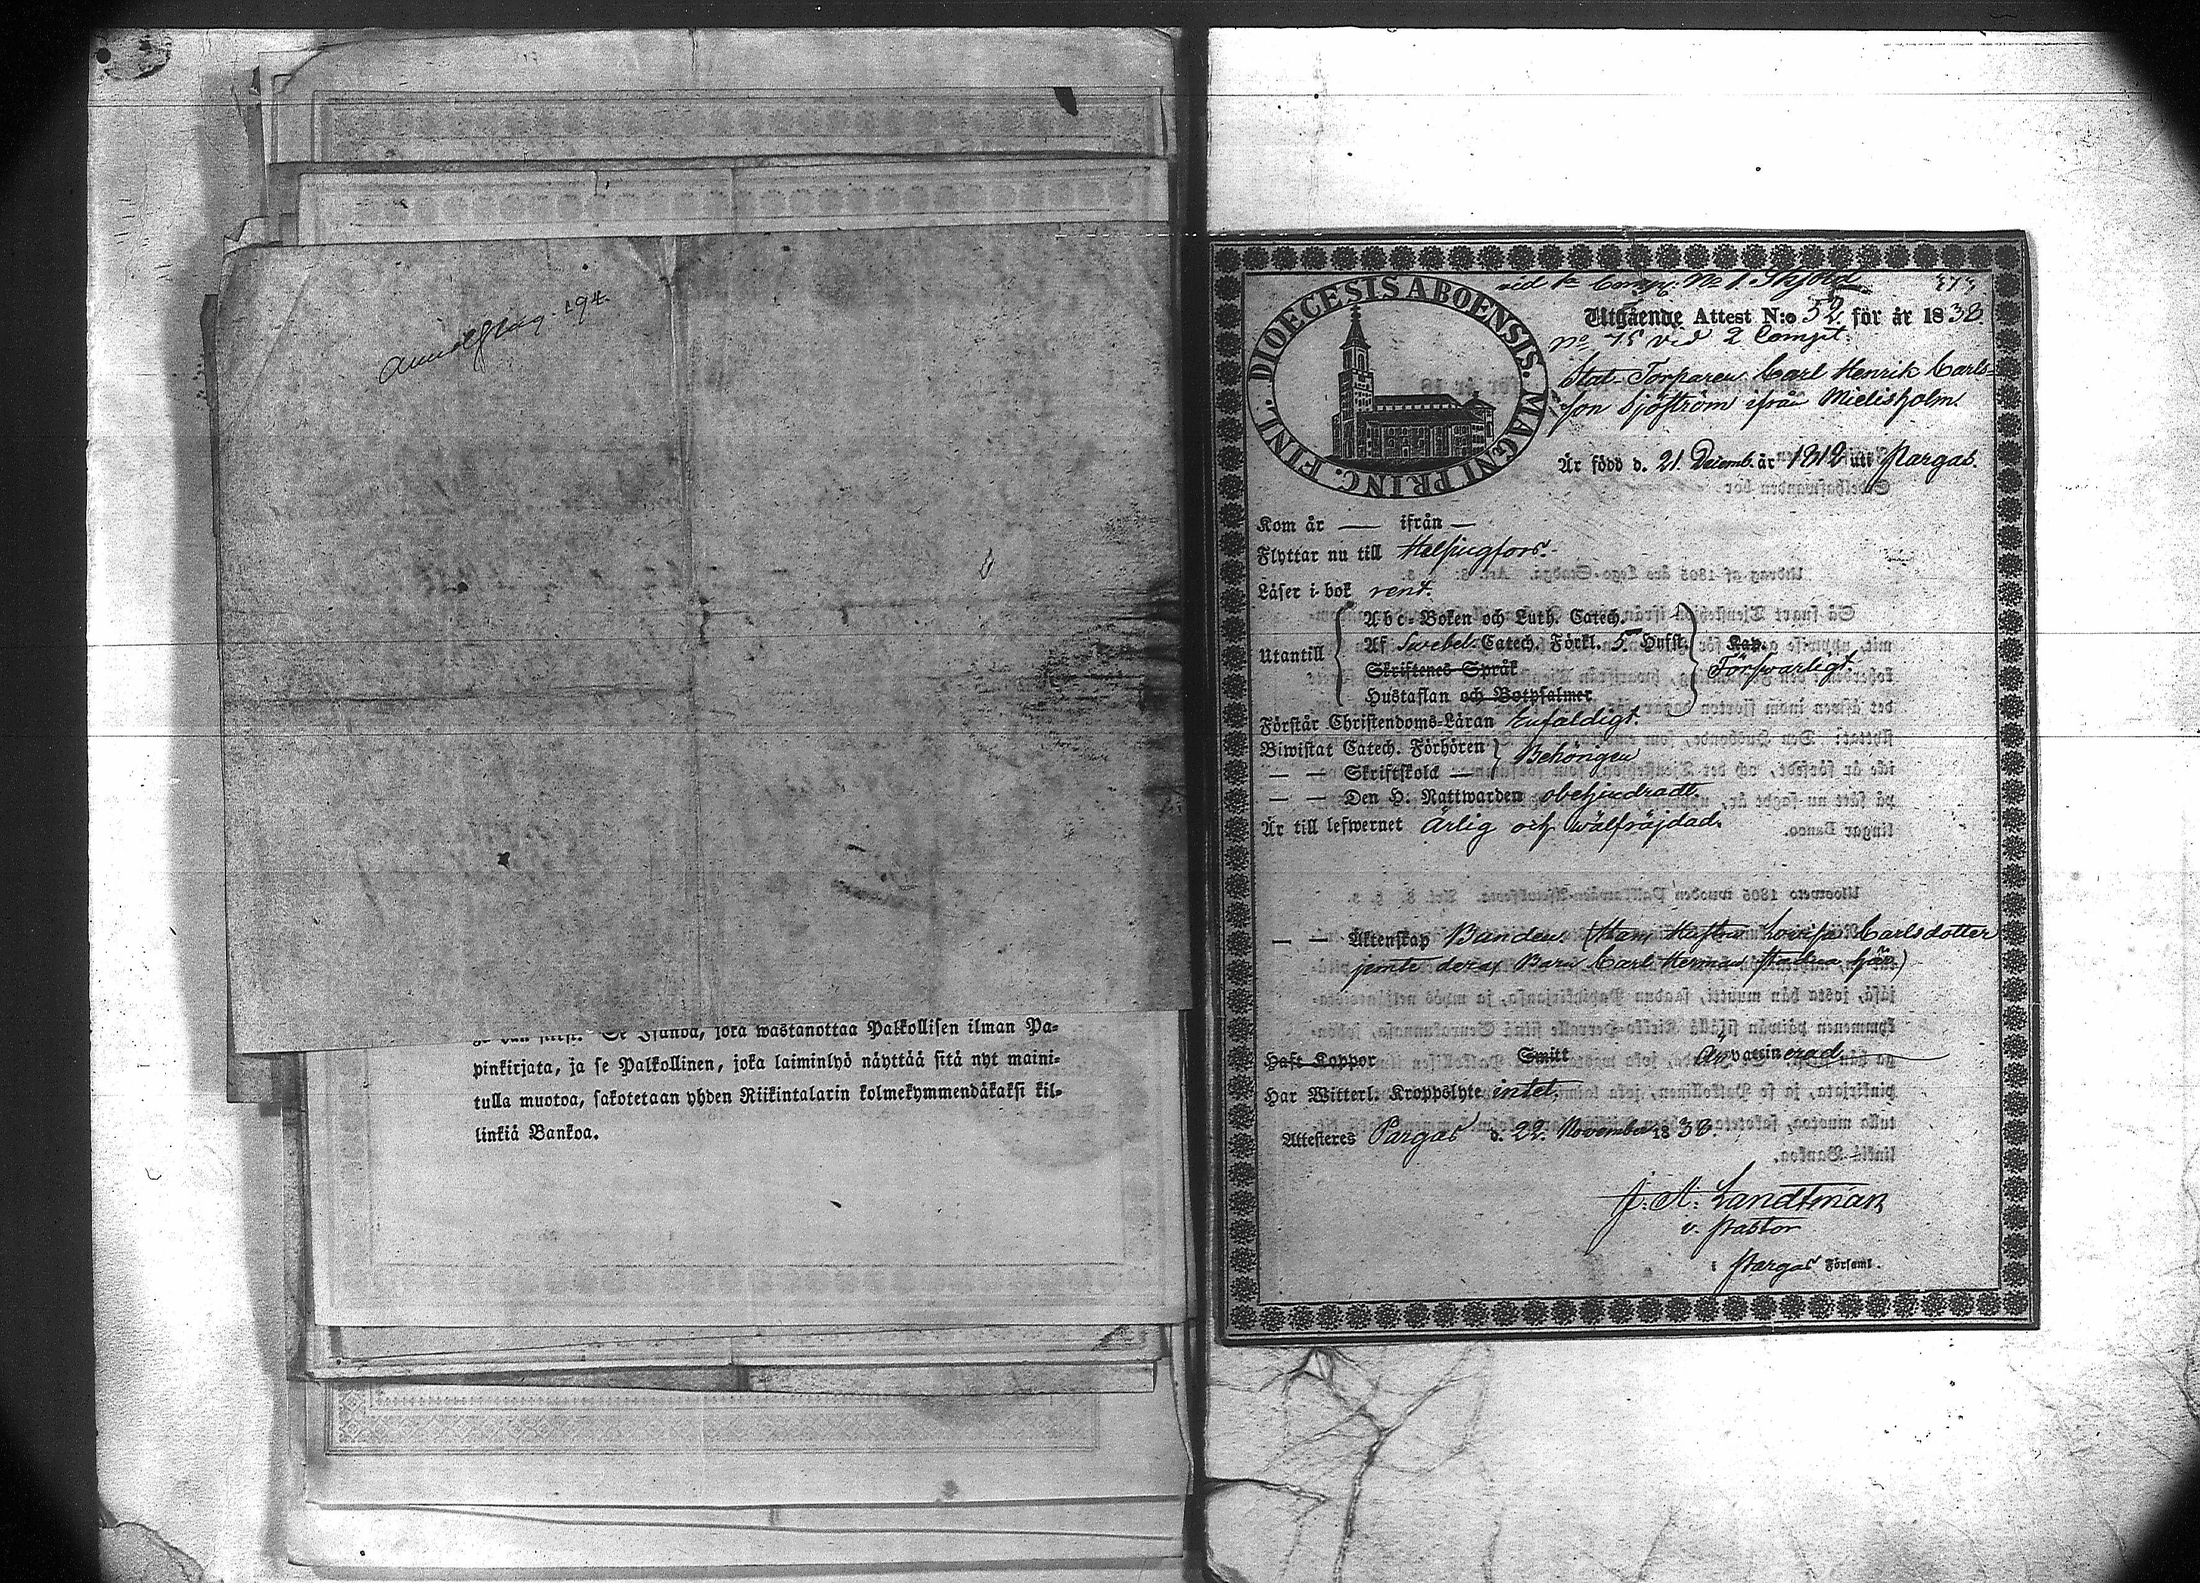 194.
pinkirjata, ja se Palkollinen, joka laiminlyö näyttää sitä nyt maini-
tulla muotoa, sakotetaan yhden Riikintalarin kolmekymmendäkaksi kil-
linkiä Bankoa.
DIOECESIS ABOENSIS. MAGNI PRINC. FINL.
vid 1e Comp. No 1 Sköld
Utgående Attest N:o 52 för år 1838.
No 75 vid 2 Compt.
Stat-Torparen Carl Henrik Carls-
son Sjöström ifrån Mielisholm.
Är född d. 21 Decemb. år 1812 uti Pargas.
Kom år — ifrån —
Flyttar nu till Helsingfors.
Läser i bok rent.
Utantill
Abc-Boken och Luth. Catech.
Af Swebel. Catech. Förkl. 5 Hufst. Kap.
Skriftenes Språk
Försvarligt.
Hustaflan och Botpsalmer
Förstår Christendoms-Läran Enfaldigt
Biwistat Catech. Förhören
Behörigen
— — Skriftskola —
— — Den H. Nattwarden obehindradt.
Är till lefwernet Ärlig och wälfräjdad.
— — Äktenskap Bunden (Stat Hustru Lovisa Carlsdotter
jemte deras Barn Carl Herman stadna här)
Haft Koppor Smitt Är vaccinerad
Har Witterl. Kroppslyte intet.
Attesteres Pargas d. 22 November 1838.
J. A. Landtman
v. Pastor
i Pargas Församl.